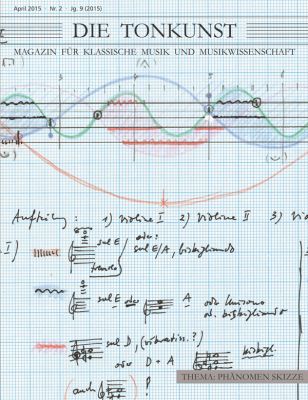 April 2015 · Nr. 2 · Jg. 9 (2015)
DIE TONKUNST
MAGAZIN FÜR KLASSISCHE MUSIK UND MUSIKWISSENSCHAFT
3 4 5 6
Aufteilung: 1) Violine I 2) Violine II 3)
I) sul E oder: sul E/A, bisbigliando
tremolo
sul E oder A oder unisono
od. bisbigliando
sul D, (vibratiss.?)
oder D + A bisbigl.
auch !
THEMA: PHÄNOMEN SKIZZE